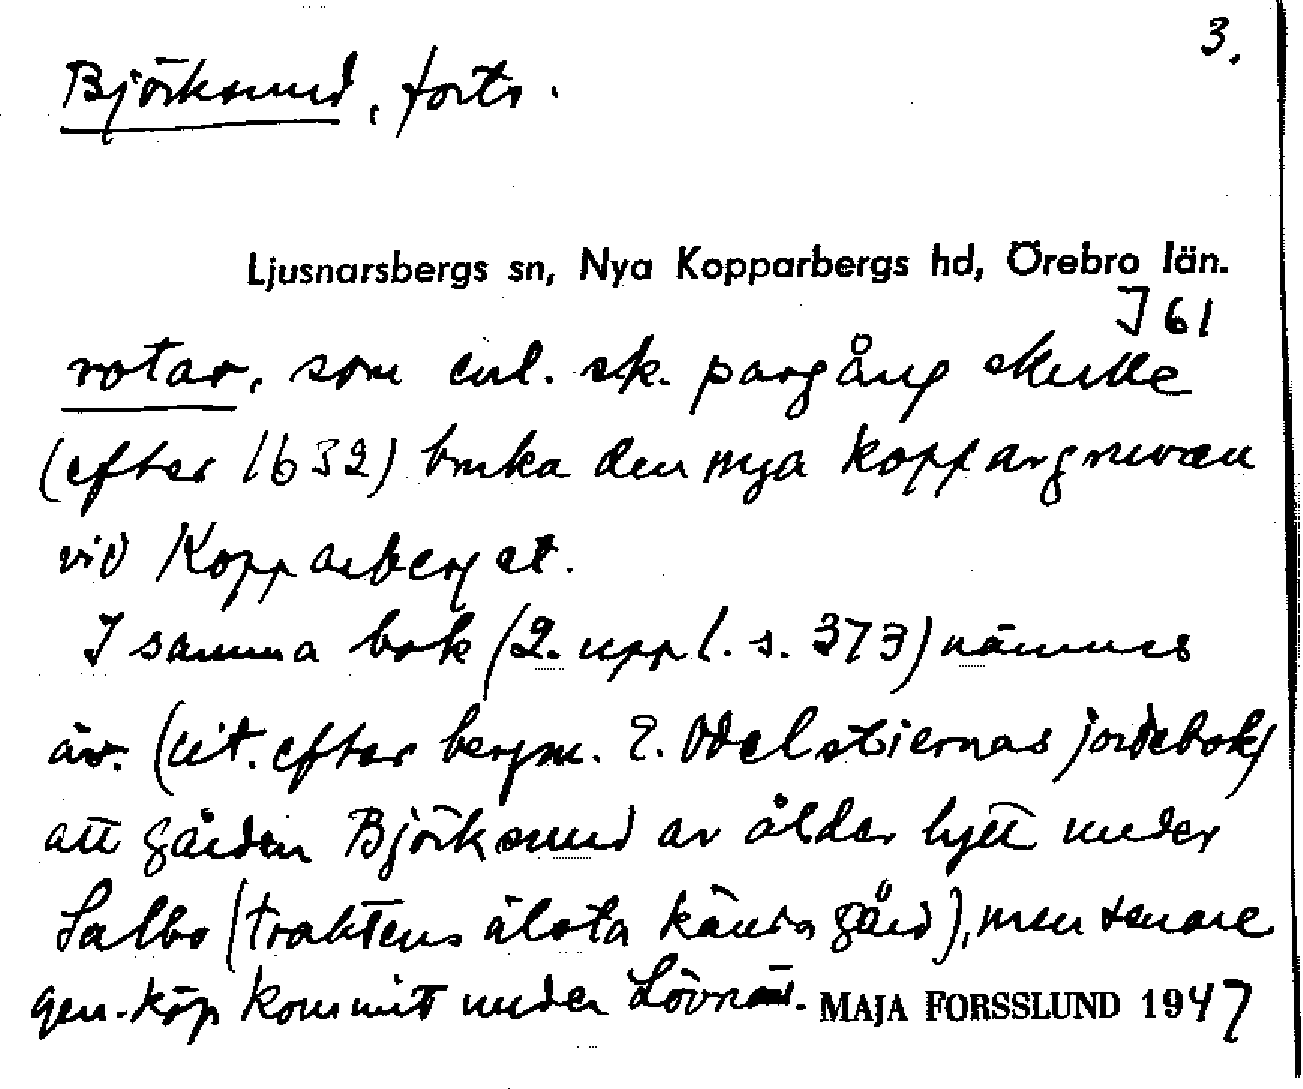 3.
Björksund, forts.
Ljusnarsbergs sn, Nya Kopparbergs hd, Örebro län.
J 61
rotar, som enl. sk. pargång skulle
(efter 1632) bruka den nya koppargruvan
vid Kopparberget.
I samma bok (2. uppl. s. 373) nämnes
äv. (cit. efter bergm. E. Odelstiernas jordebok)
att gården Björksund av ålder lytt under
Salbo (traktens älsta kända gård), men senare
gen. köp kommit under Lövnäs. MAJA FORSSLUND 1947